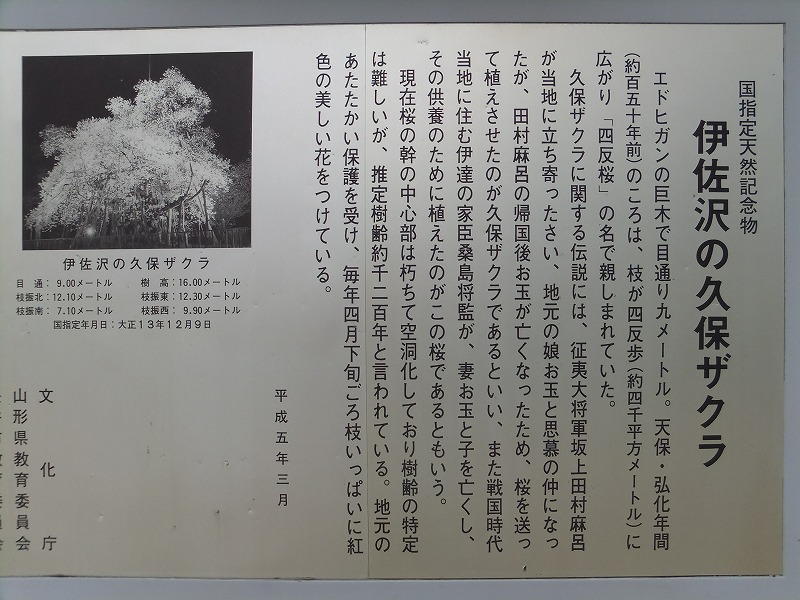 国指定天然記念物
伊佐沢の久保ザクラ
エドヒガンの巨木で目通り九メートル。天保・弘化年間
(約百五十年前)のころは、枝が四反歩(約四千平方メートル)に
広がり「四反桜」の名で親しまれていた。
久保ザクラに関する伝説には、征夷大将軍坂上田村麻呂
が当地に立ち寄ったさい、地元の娘お玉と思慕の仲になっ
たが、田村麻呂の帰国後お玉が亡くなったため、桜を送っ
て植えさせたのが久保ザクラであるといい、また戦国時代
当地に住む伊達の家臣桑島将監が、妻お玉と子を亡くし、
その供養のために植えたのがこの桜であるともいう。
現在桜の幹の中心部は朽ちて空洞化しており樹齢の特定
は難しいが、推定樹齢約千二百年と言われている。地元の
あたたかい保護を受け、毎年四月下旬ごろ枝いっぱいに紅
色の美しい花をつけている。
平成五年三月
伊佐沢の久保ザクラ
目通：9.00メートル　樹高：16.00メートル
枝振北：12.10メートル　枝振東：12.30メートル
枝振南：7.10メートル　枝振西：9.90メートル
国指定年月日：大正13年12月9日
文化庁
山形県教育委員会